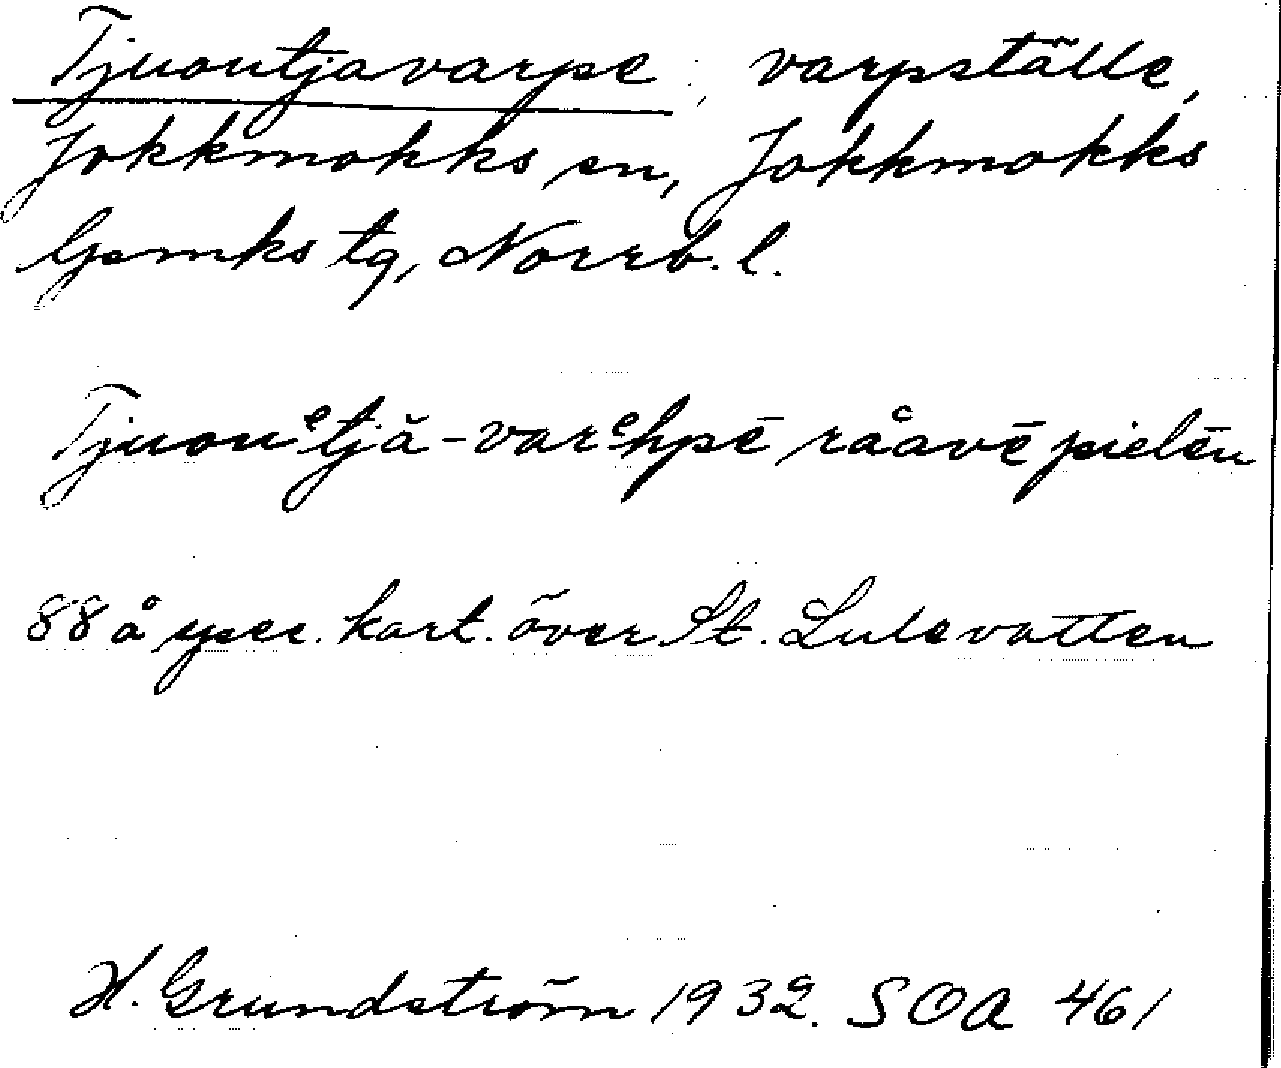 Tjuontjavarpe, varpställe,
Jokkmokks sn, Jokkmokks
lpmks tg, Norrb. l.
Tjuonᵉtjă-varᵉhpē råavē pielēn
88 å spec. kart. över St. Lulevatten
H. Grundström 1932. SOA 461